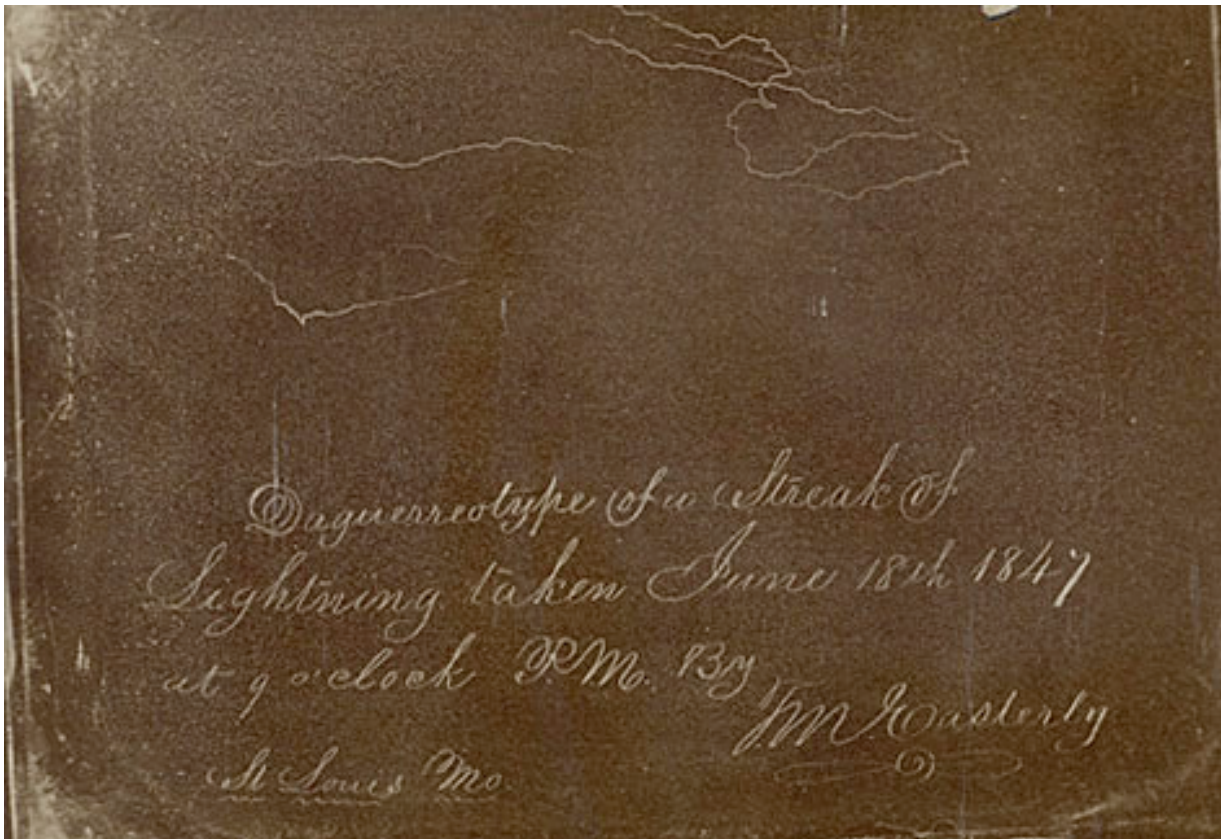 Daguerreotype of a Streak of
Lightning taken June 18th 1847
at 9 o'clock P.M. By
T.M Easterly
St Louis Mo.